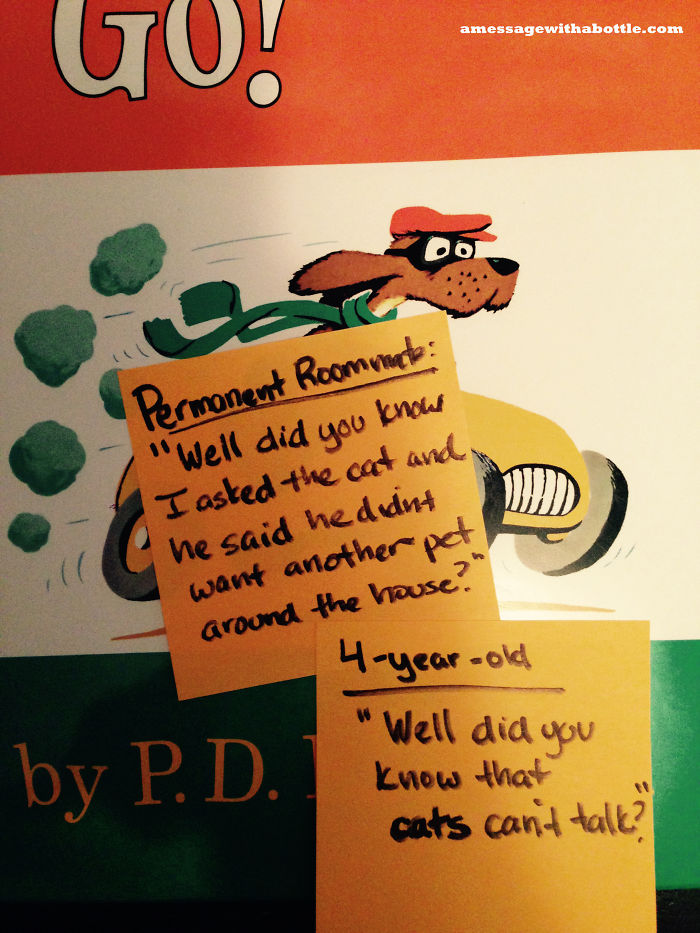 amessagewithabottle.com
Go!
Permanent Roommate:
"Well did you know
I asked the cat and
he said he didnt
want another pet
around the house?"
4-year-old
"Well did you
know that
cats can't talk?"
by P. D.